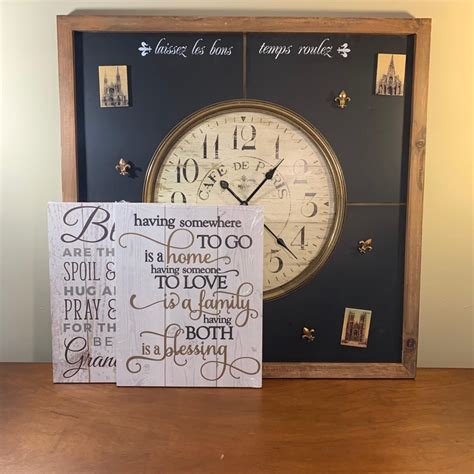 laissez les bons temps roulez
11 12 1
10 2
9 3
4
CAFE DE PARIS
Bl
ARE TH
SPOIL &
HUG AN
PRAY &
FOR TH
BE
Grand
having somewhere
TO GO
is a home
having someone
TO LOVE
is a family
having
BOTH
is a blessing